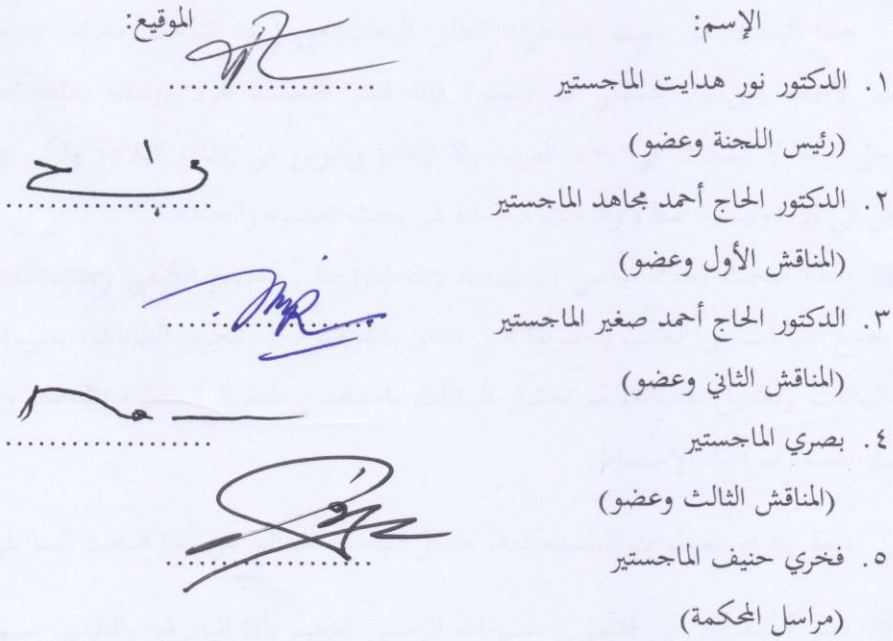 الإسم: الموقيع:
١. الدكتور نور هدايت الماجستير ....................
(رئيس اللجنة وعضو)
٢. الدكتور الحاج أحمد مجاهد الماجستير ....................
(المناقش الأول وعضو)
٣. الدكتور الحاج أحمد صغير الماجستير ....................
(المناقش الثاني وعضو)
٤. بصري الماجستير ....................
(المناقش الثالث وعضو)
٥. فخري حنيف الماجستير ....................
(مراسل المحكمة)